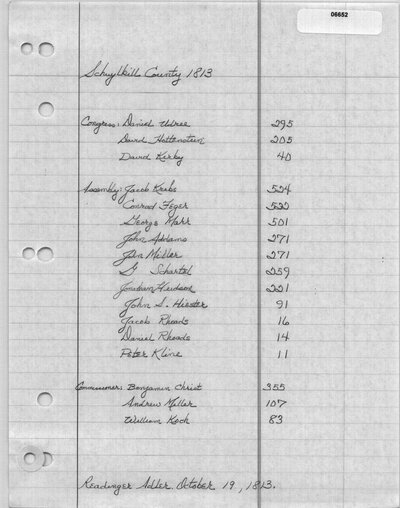 06652
Schuylkill County 1813
Congress: Daniel Udree 295
David Hottenstein 205
David Kirby 40
Assembly: Jacob Krebs 524
Conrad Feger 522
George Marr 501
John Addams 271
John Miller 271
G Schartel 259
Jonathan Hudson 221
John S. Hiester 91
Jacob Rhoads 16
Daniel Rhoads 14
Peter Kline 11
Commissioner: Benjamin Christ 355
Andrew Miller 107
William Koch 83
Readinger Adler. October 19, 1813.